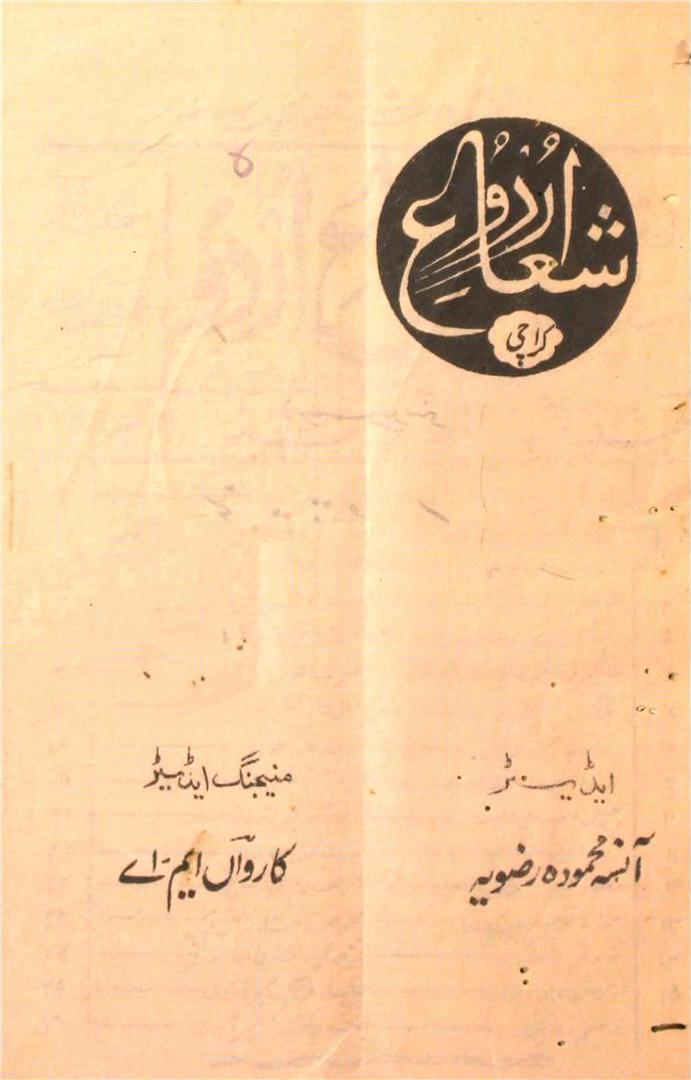 شعاع اردو
کراچی
ایڈیٹر
آنسہ محمودہ رضویہ
منیجنگ ایڈیٹر
کارواں ایم۔اے